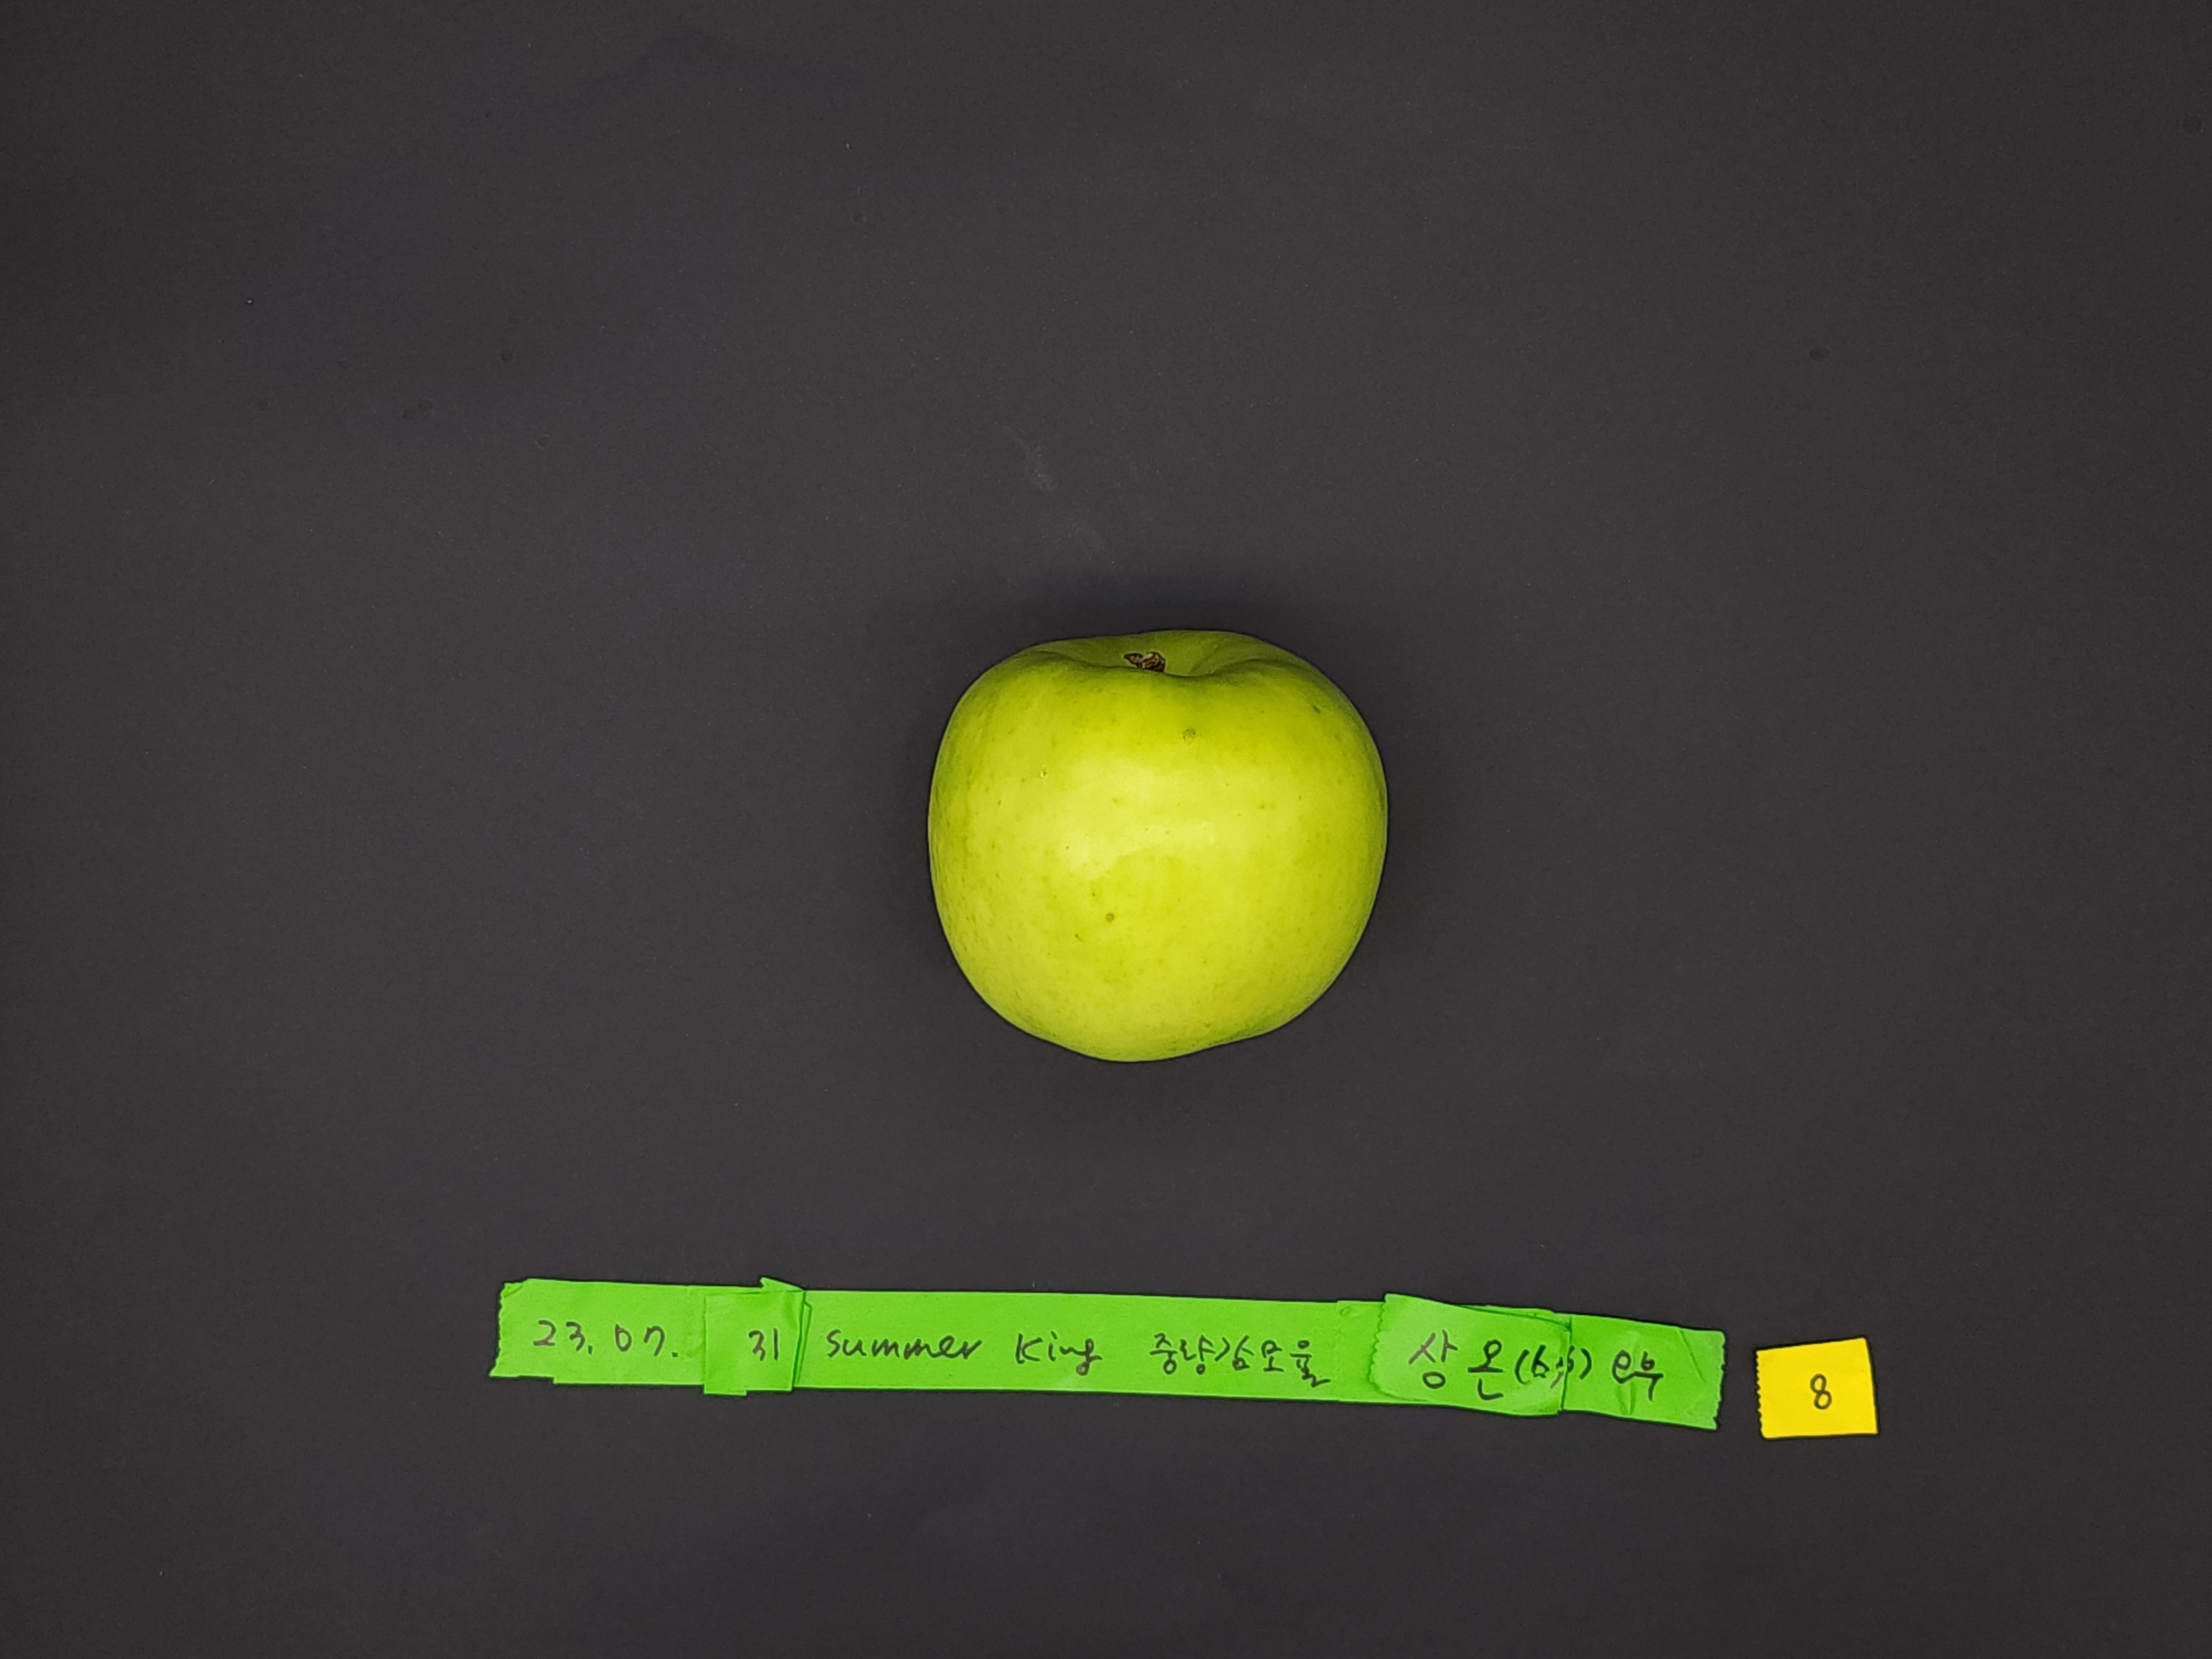 23.07. 31 Summer King 중량감모율 상온
8